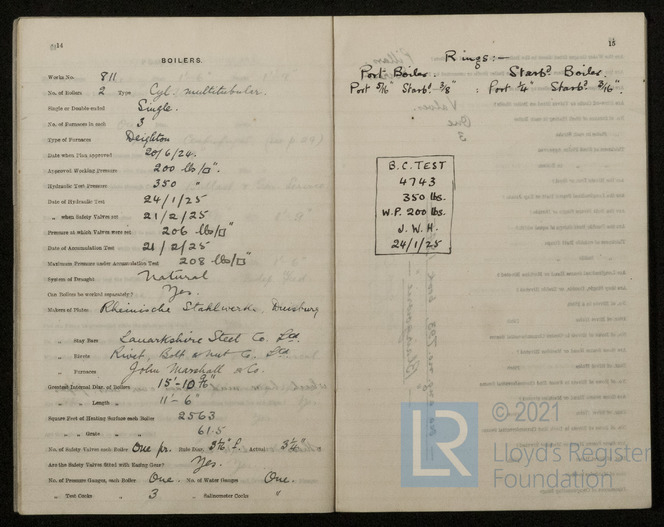 14
BOILERS.
Works No. 811
No. of Boilers 2 Type Cyl. multitubular.
Single or Double-ended Single.
No. of Furnaces in each 3
Type of Furnaces Deighton
Date when Plan approved 20/6/24.
Approved Working Pressure 200 lbs/□"
Hydraulic Test Pressure 350 "
Date of Hydraulic Test 24/1/25
" when Safety Valves set 21/2/25
Pressure at which Valves were set 206 lbs/□"
Date of Accumulation Test 21/2/25
Maximum Pressure under Accumulation Test 208 lbs/□"
System of Draught Natural
Can Boilers be worked separately? Yes.
Makers of Plates Rheinische Stahlwerke, Duisburg
" Stay Bars Lanarkshire Steel Co. Ltd.
" Rivets Rivet, Bolt & Nut Co. Ltd.
" Furnaces John Marshall & Co.
Greatest Internal Diam. of Boilers 15'-10
" " Length " 11'-6"
Square Feet of Heating Surface each Boiler 2563
" " Grate " 61.5
No. of Safety Valves each Boiler One pr. Rule Diam. Actual
Are the Safety Valves fitted with Easing Gear? Yes.
No. of Pressure Gauges, each Boiler One. No. of Water Gauges One.
" Test Cocks " 3 " Salinometer Cocks "
15
Rings:-
Port Boiler. Starbd. Boiler.
Port 5/16" Starbd. 3/8" : Port 1/4" Starbd. 3/16".
B.C. TEST
4743
350 lbs.
W.P. 200 lbs.
J.W.H.
24/1/25
© 2021
LR
Lloyd's Register
Foundation